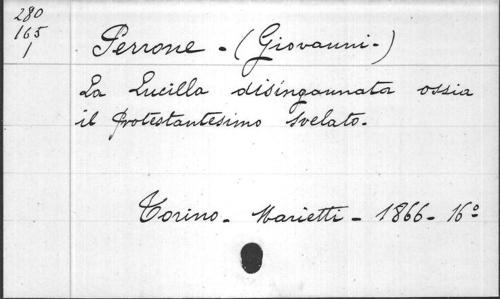 280
165
1
Perrone - (Giovanni-)
La Lucilla disingannata ossia
il Protestantesimo svelato.
Torino - Marietti - 1866 - 16º